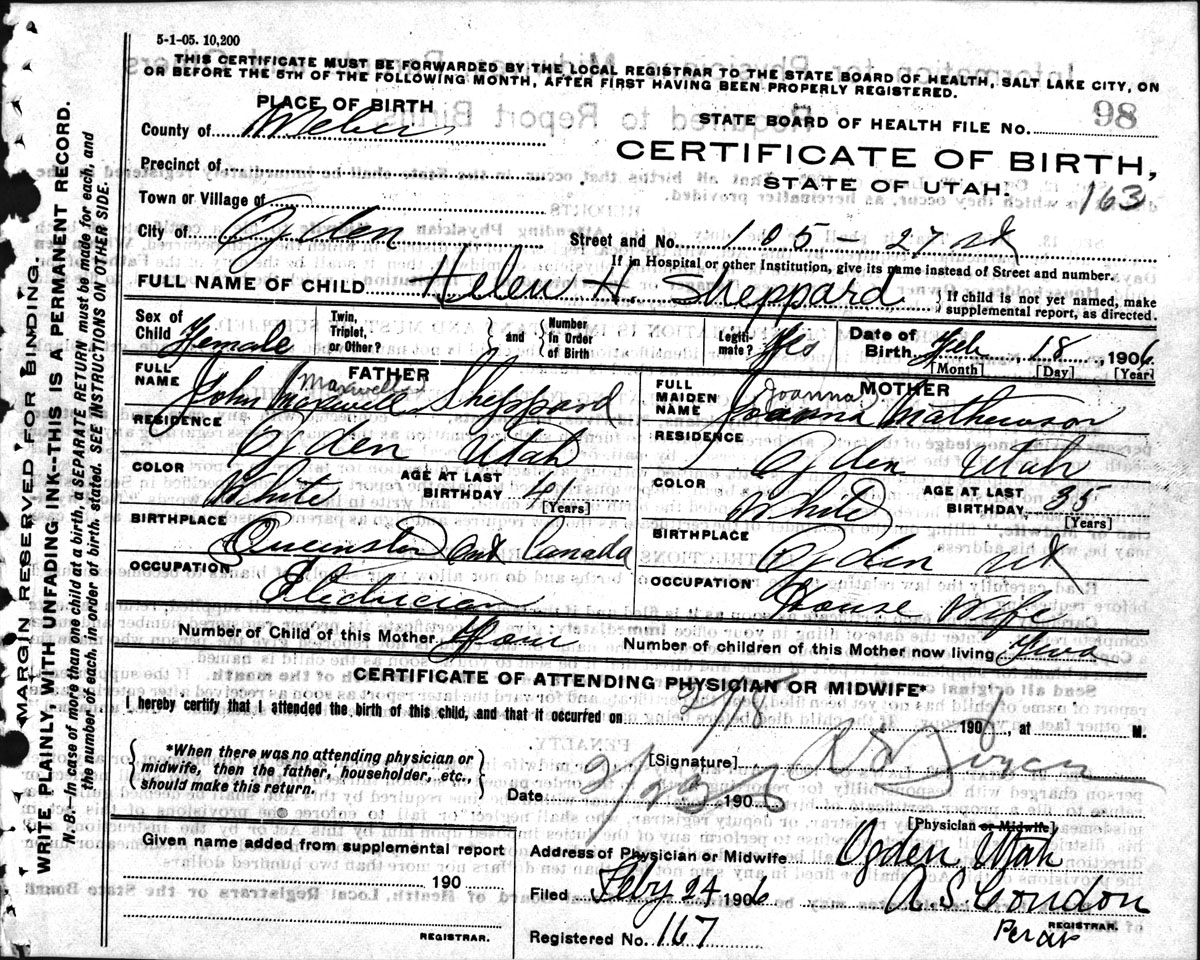 5-1-05. 10,200
THIS CERTIFICATE MUST BE FORWARDED BY THE LOCAL REGISTRAR TO THE STATE BOARD OF HEALTH, SALT LAKE CITY, ON
OR BEFORE THE 5TH OF THE FOLLOWING MONTH, AFTER FIRST HAVING BEEN PROPERLY REGISTERED.
PLACE OF BIRTH
County of Weber
STATE BOARD OF HEALTH FILE NO. 98
CERTIFICATE OF BIRTH,
STATE OF UTAH.
163
Precinct of
Town or Village of
City of Ogden Street and No. 105 - 27 st
If in Hospital or other Institution, give its name instead of Street and number.
FULL NAME OF CHILD Helen H. Sheppard } If child is not yet named, make supplemental report, as directed.
Sex of Child Female Twin, Triplet, or Other? } and { Number in Order of Birth Legitimate? Yes Date of Birth Feb 18, 1906
[Month] [Day] [Year]
FATHER
MOTHER
FULL NAME John Maxwell Sheppard
FULL MAIDEN NAME Joanna Mathewson
Joanna
RESIDENCE Ogden Utah
RESIDENCE Ogden Utah
COLOR White AGE AT LAST BIRTHDAY 41 [Years]
COLOR White AGE AT LAST BIRTHDAY 35 [Years]
BIRTHPLACE Queenston Ont Canada
BIRTHPLACE Ogden Ut
OCCUPATION Electrician
OCCUPATION House Wife
Number of Child of this Mother Four Number of children of this Mother now living Two
CERTIFICATE OF ATTENDING PHYSICIAN OR MIDWIFE*
I hereby certify that I attended the birth of this child, and that it occurred on 2/18 190 , at M.
{ *When there was no attending physician or midwife, then the father, householder, etc., should make this return. }
[Signature]
Date 190
[Physician or Midwife]
Given name added from supplemental report
190
REGISTRAR.
Address of Physician or Midwife Ogden Utah
Filed Feby 24 1906 A. S. Condon
REGISTRAR.
Registered No. 167
MARGIN RESERVED FOR BINDING.
WRITE PLAINLY, WITH UNFADING INK--THIS IS A PERMANENT RECORD.
N. B.--In case of more than one child at a birth, a SEPARATE RETURN must be made for each, and
the number of each, in order of birth, stated. SEE INSTRUCTIONS ON OTHER SIDE.